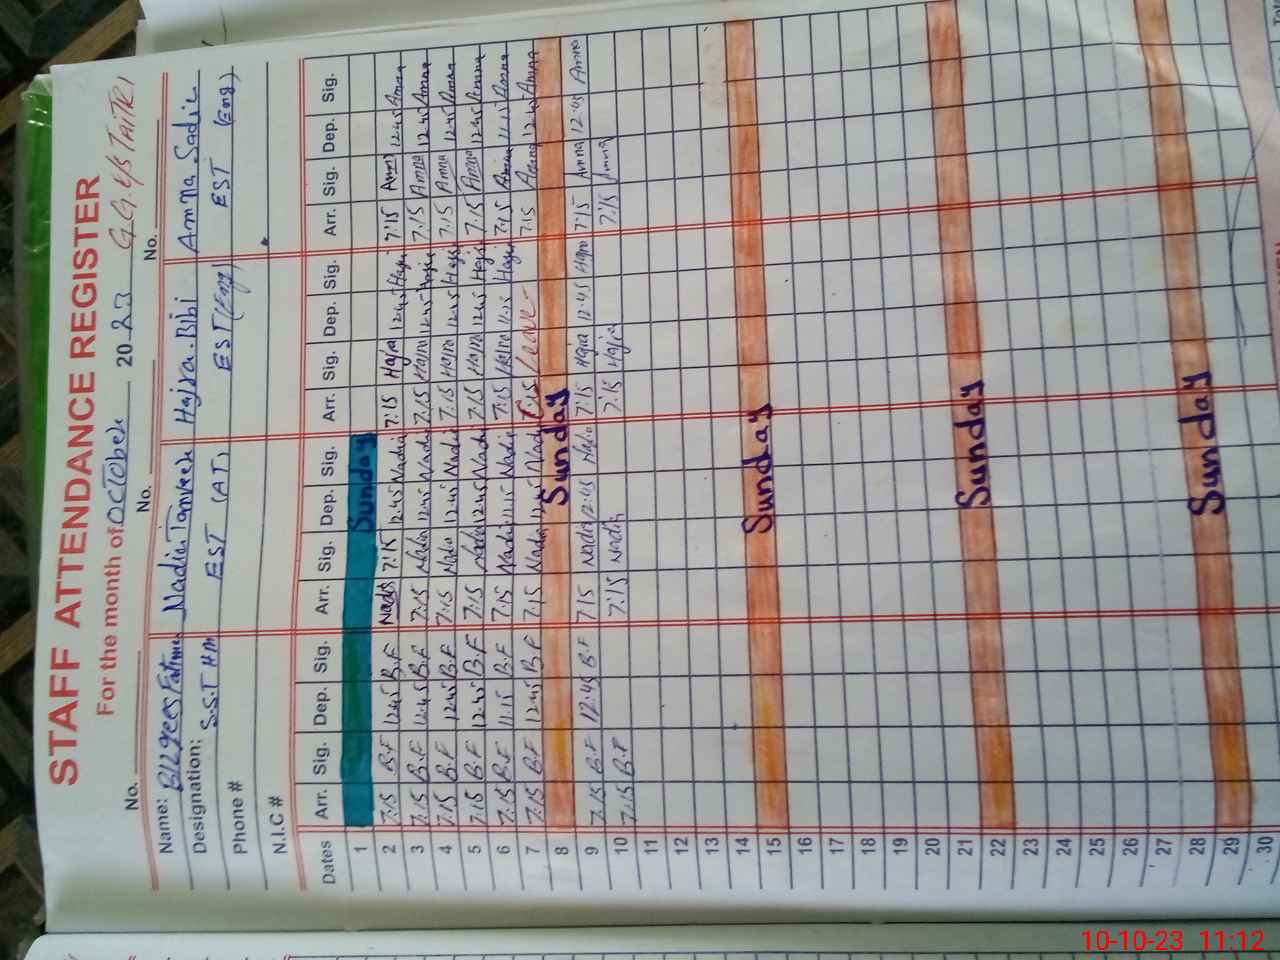 STAFF ATTENDANCE REGISTER
For the month of OCTOber 2023 G.G. E/S TAITRI
No. No. No.
Name: Bilqees Fatima Nadia Tanveer Hajra Bibi Amna Sadie
Designation: S.S.T HM EST (AT) EST (Eng) EST (Eng)
Phone #
N.I.C #
Dates Arr. Sig. Dep. Sig. Arr. Sig. Dep. Sig. Arr. Sig. Dep. Sig. Arr. Sig. Dep. Sig.
1 Sunday
2 7:15 B.F 12:45 B.F Nadia 7:15 12:45 Nadia 7:15 Hajra 12:45 Hajra 7:15 Amna 12:45 Amna
3 7:15 B.F 12:45 B.F 7:15 Nadia 12:45 Nadia 7:15 Hajra 12:45 Hajra 7:15 Amna 12:45 Amna
4 7:15 B.F 12:45 B.F 7:15 Nadia 12:45 Nadia 7:15 Hajra 12:45 Hajra 7:15 Amna 12:45 Amna
5 7:15 B.F 12:45 B.F 7:15 Nadia 12:45 Nadia 7:15 Hajra 12:45 Hajra 7:15 Amna 12:45 Amna
6 7:15 B.F 11:15 B.F 7:15 Nadia 11:15 Nadia 7:15 Hajra 11:15 Hajra 7:15 Amna 11:15 Amna
7 7:15 B.F 12:45 B.F 7:15 Nadia 12:45 Nadia Leave 7:15 Amna 12:45 Amna
8 Sunday
9 7:15 B.F 12:45 B.F 7:15 Nadia 12:45 Nadia 7:15 Hajra 12:45 Hajra 7:15 Amna 12:45 Amna
10 7:15 B.F 7:15 Nadia 7:15 Hajra 7:15 Amna
11
12
13
14
15 Sunday
16
17
18
19
20
21
22 Sunday
23
24
25
26
27
28
29 Sunday
30
10-10-23 11:12